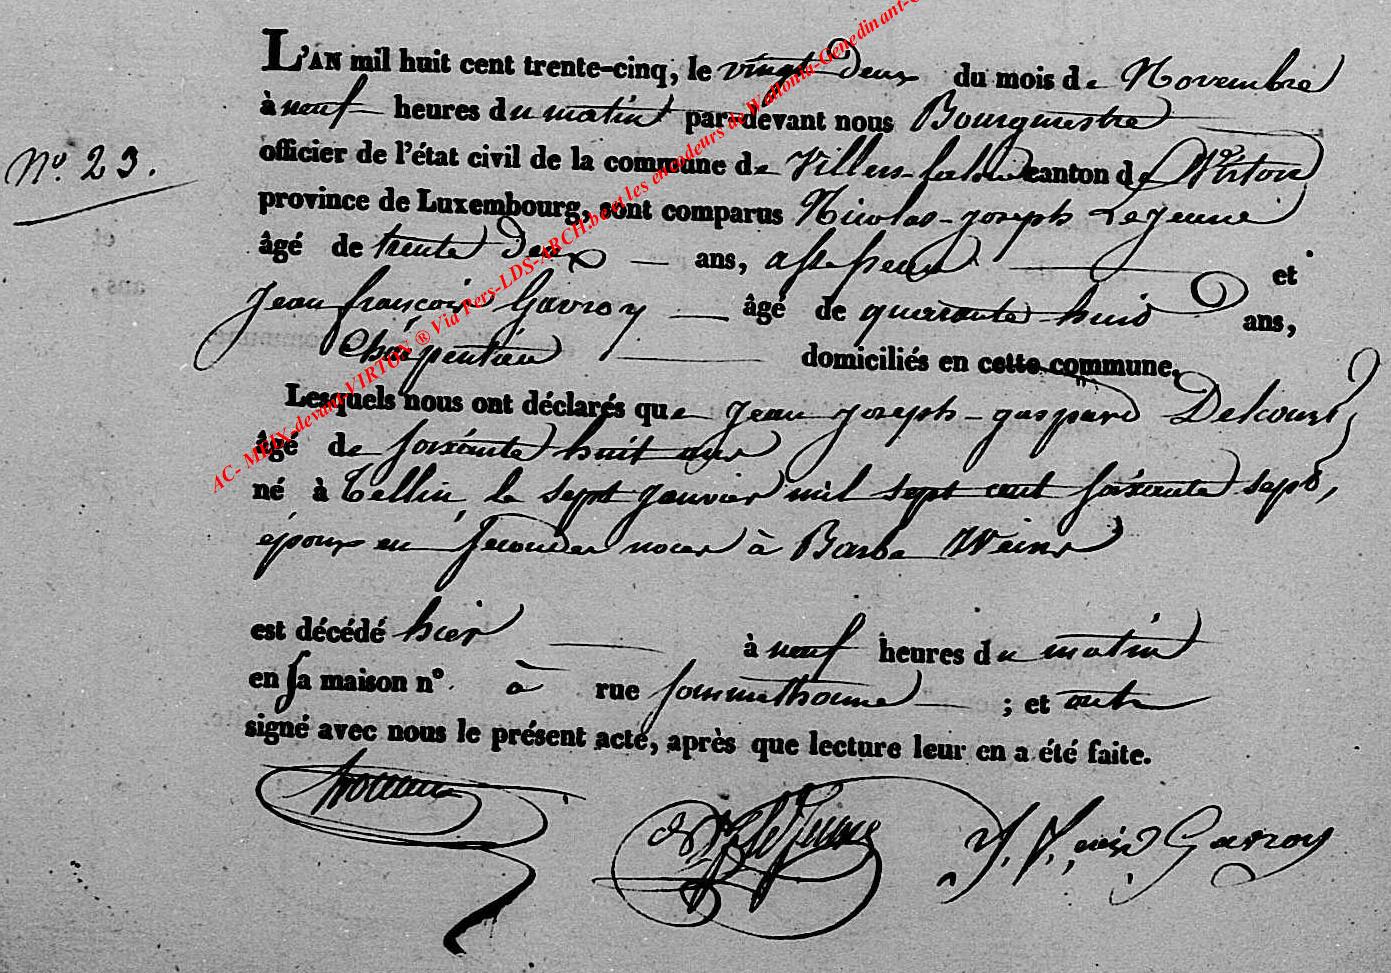 L'AN mil huit cent trente-cinq, le vingt deux du mois de Novembre
à neuf heures du matin par-devant nous Bourgmestre
N.º 23.
officier de l'état civil de la commune de Villers canton de Virton
province de Luxembourg, sont comparus Nicolas-joseph Lejeune
âgé de trente deux ans, assesseur et
Jean françois Gavroy âgé de quarante huit ans,
Charpentier domiciliés en cette commune.
Lesquels nous ont déclarés que Jean joseph-gaspard Delcourt,
âgé de soixante huit ans
né à Tellin, le sept janvier mil sept cent soixante sept,
époux en secondes noces à Barbe
est décédé hier à neuf heures du matin
en sa maison nº. à rue ; et ont
signé avec nous le présent acte, après que lecture leur en a été faite.
LeJeune Gavroy
AC- MEIX-devant-VIRTON ® Via Pers-LDS-ARCH.be et les encodeurs de Wallonia-Genedinant-